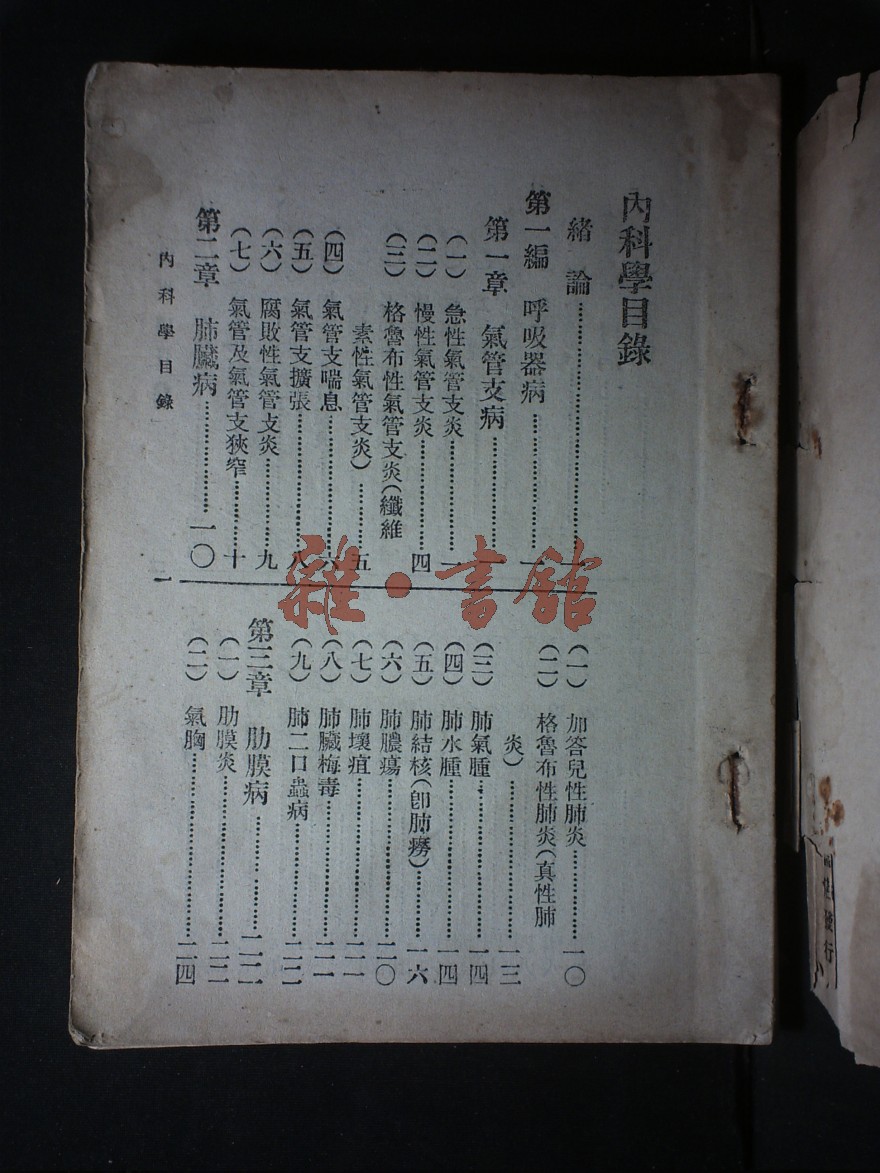 內科學目錄
緒論……………一
第一編 呼吸器病……………一
第一章 氣管支病……………一
(一) 急性氣管支炎……………一
(二) 慢性氣管支炎……………四
(三) 格魯布性氣管支炎(纖維
素性氣管支炎)……………五
(四) 氣管支喘息……………六
(五) 氣管支擴張……………八
(六) 腐敗性氣管支炎……………九
(七) 氣管及氣管支狹窄……………十
第二章 肺臟病……………一〇
(一) 加答兒性肺炎……………一〇
(二) 格魯布性肺炎(真性肺
炎)……………一三
(三) 肺氣腫……………一四
(四) 肺水腫……………一四
(五) 肺結核(卽肺癆)……………一六
(六) 肺膿瘍……………二〇
(七) 肺壞疽……………二一
(八) 肺臟梅毒……………二一
(九) 肺二口蟲病……………二二
第三章 肋膜病……………二二
(一) 肋膜炎……………二二
(二) 氣胸……………二四
內科學目錄
一
雜·書館
發行